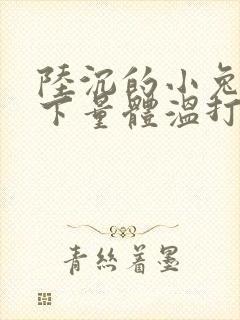 陸沉的小兔
下量體溫打
青絲著墨